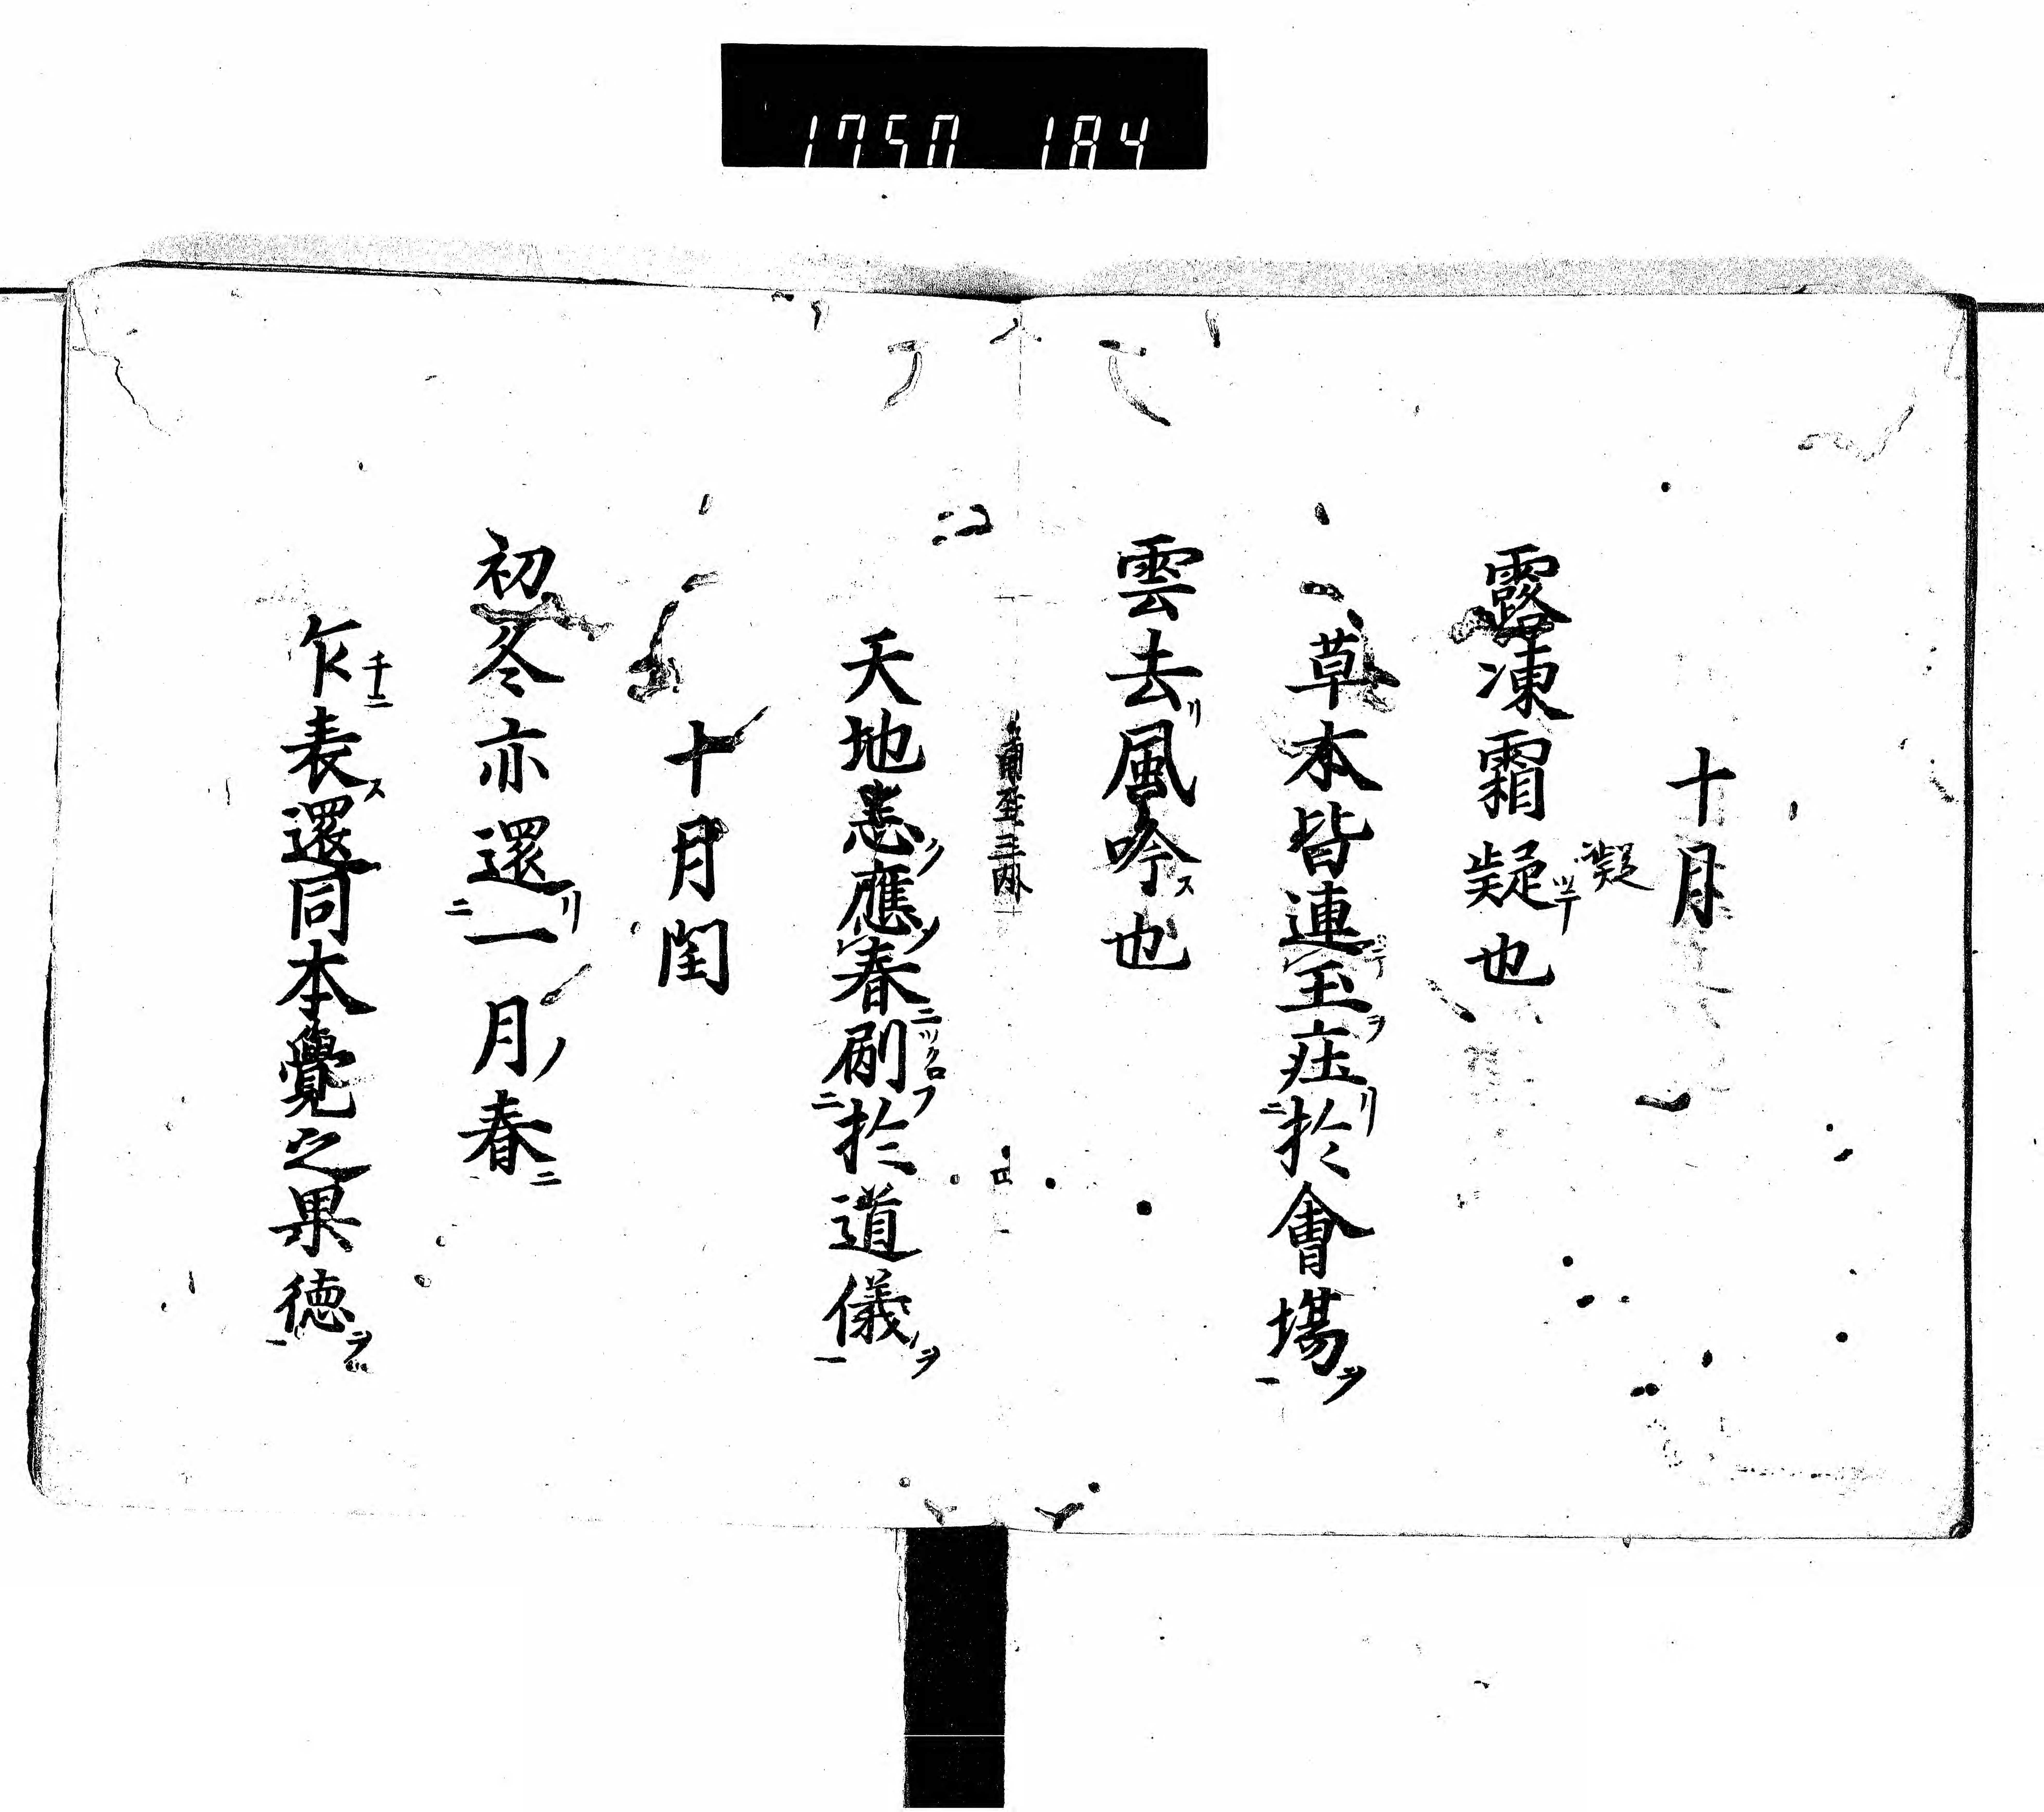 1750 184
十月
凝
露凍霜凝也
草木皆連玉庄於會場
雲去風吟也
天地悉應春刷於道儀
十月閏
初冬亦還一月春
乍表還同本覺之果徳